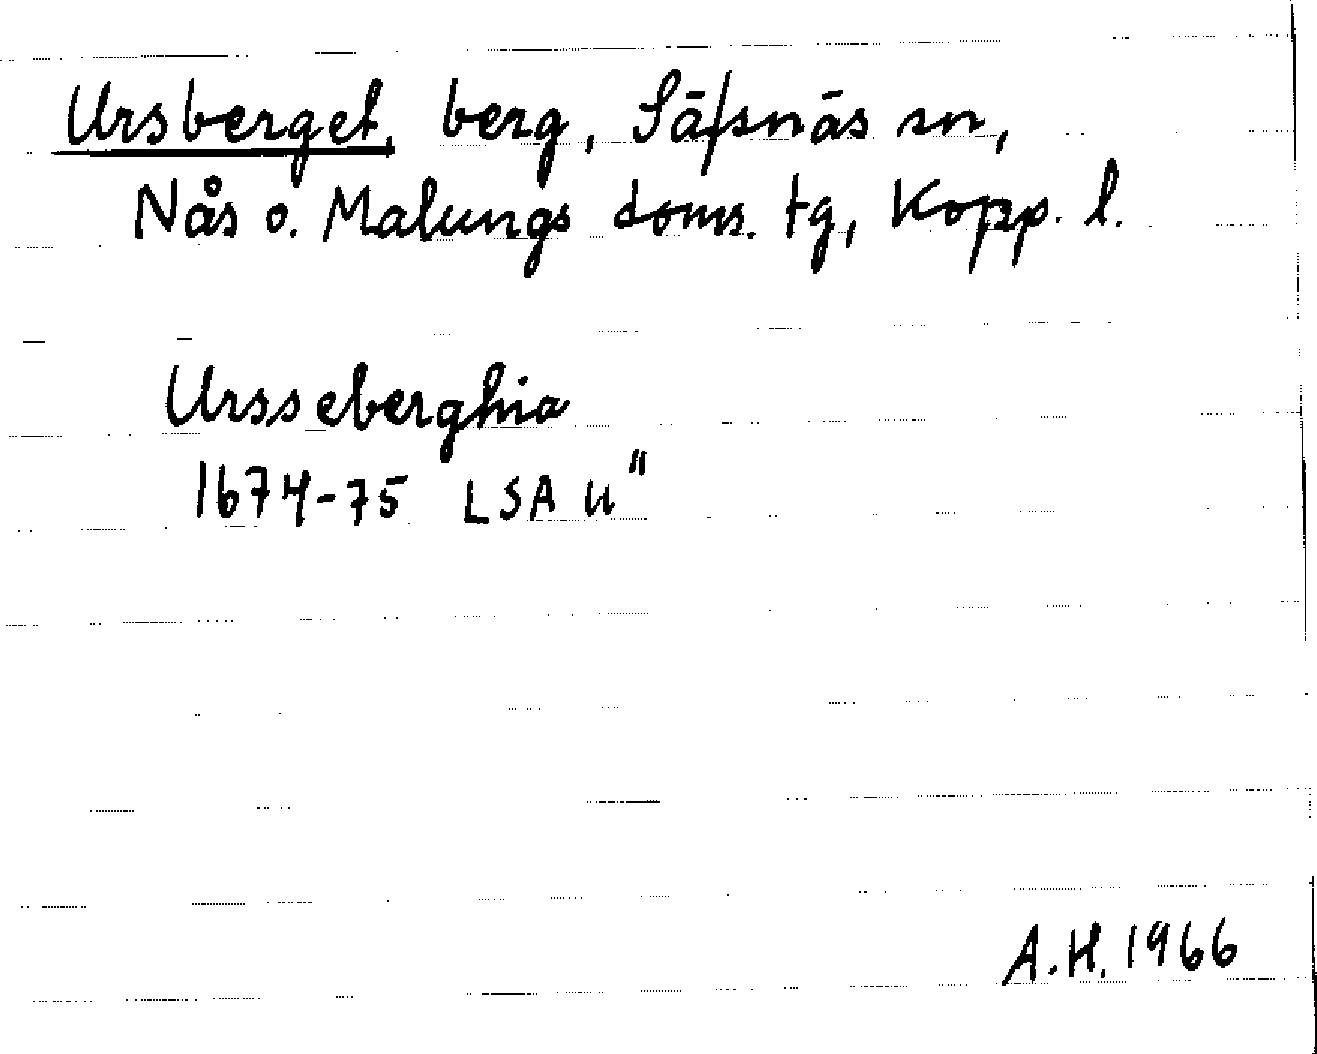 Ursberget, berg, Säfsnäs sn,
Nås o. Malungs doms. tg, Kopp. l.
Ursseberghia
1674-75 LSA u"
A.H. 1966